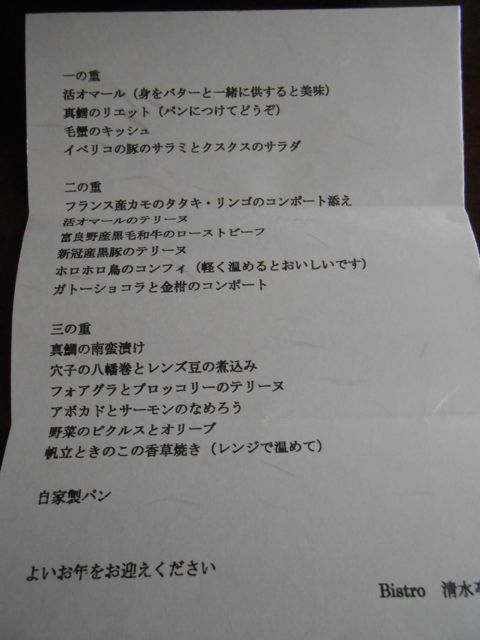 一の重
活オマール（身をバターと一緒に供すると美味）
真鱈のリエット（パンにつけてどうぞ）
毛蟹のキッシュ
イベリコの豚のサラミとクスクスのサラダ
二の重
フランス産カモのタタキ・リンゴのコンポート添え
活オマールのテリーヌ
富良野産黒毛和牛のローストビーフ
新冠産黒豚のテリーヌ
ホロホロ鳥のコンフィ（軽く温めるとおいしいです）
ガトーショコラと金柑のコンポート
三の重
真鯛の南蛮漬け
穴子の八幡巻とレンズ豆の煮込み
フォアグラとブロッコリーのテリーヌ
アボカドとサーモンのなめろう
野菜のピクルスとオリーブ
帆立ときのこの香草焼き（レンジで温めて）
自家製パン
よいお年をお迎えください
Bistro 清水